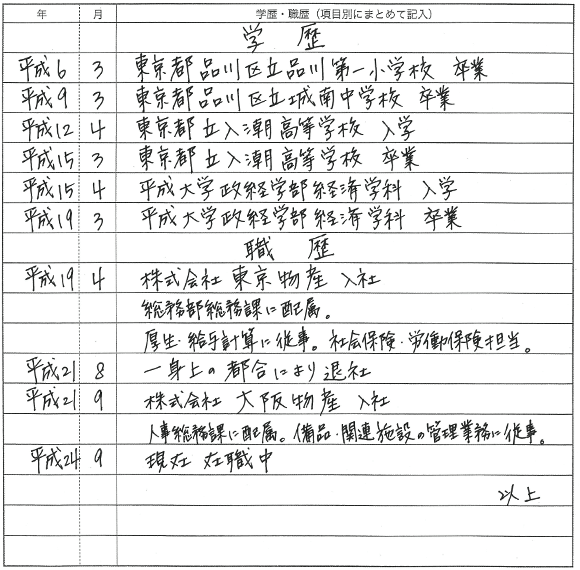 年 月 学歴・職歴（項目別にまとめて記入）
学 歴
平成6 3 東京都品川区立品川第一小学校 卒業
平成9 3 東京都品川区立城南中学校 卒業
平成12 4 東京都立入潮高等学校 入学
平成15 3 東京都立入潮高等学校 卒業
平成15 4 平成大学政経学部経済学科 入学
平成19 3 平成大学政経学部経済学科 卒業
職 歴
平成19 4 株式会社 東京物産 入社
総務部総務課に配属。
厚生・給与計算に従事。社会保険・労働保険担当。
平成21 8 一身上の都合により退社
平成21 9 株式会社 大阪物産 入社
人事総務課に配属。備品・関連施設の管理業務に従事。
平成24 9 現在 在職中
以上